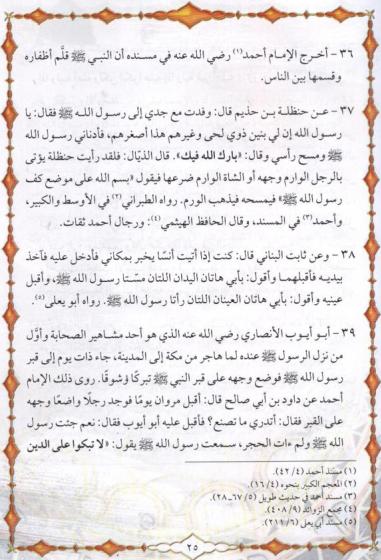 ٣٦ - أخرج الإمام أحمد(١) رضي الله عنه في مسنده أن النبي ﷺ قلَّم أظفاره
وقسمها بين الناس.
٣٧ - عـن حنظلـة بـن حذيم قال: وفدت مع جدي إلى رسـول اللـه ﷺ فقال: يا
رسـول اللـه إن لي بنين ذوي لحى وغيرهم هذا أصغرهم، فأدناني رسول الله
ﷺ ومسح رأسي وقال: «بارك الله فيك». قال الذيّال: فلقد رأيت حنظلة يؤتى
بالرجل الوارم وجهه أو الشاة الوارم ضرعها فيقول «بسم الله على موضع كف
رسول الله ﷺ» فيمسحه فيذهب الورم. رواه الطبراني(٢) في الأوسط والكبير،
وأحمد(٣) في المسند، وقال الحافظ الهيثمي(٤): ورجال أحمد ثقات.
٣٨ - وعن ثابت البناني قال: كنت إذا أتيت أنسًا يخبر بمكاني فأدخل عليه فآخذ
بيديـه فأقبلهمـا وأقول: بأبي هاتان اليدان اللتان مسّـتا رسـول الله ﷺ، وأقبل
عينيه وأقول: بأبي هاتان العينان اللتان رأتا رسول الله ﷺ. رواه أبو يعلى(٥).
٣٩ - أبـو أيـوب الأنصاري رضي الله عنه الذي هو أحد مشاهير الصحابة وأوَّل
من نزل الرسول ﷺ عنده لما هاجر من مكة إلى المدينة، جاء ذات يوم إلى قبر
رسول الله ﷺ فوضع وجهه على قبر النبي ﷺ تبركًا وشوقًا. روى ذلك الإمام
أحمد عن داود بن أبي صالح قال: أقبل مروان يومًا فوجد رجلًا واضعًا وجهه
على القبر فقال: أتدري ما تصنع؟ فأقبل عليه أبو أيوب فقال: نعم جئت رسول
الله ﷺ ولم ءات الحجر، سـمعت رسول الله ﷺ يقول: «لا تبكوا على الدين
(١) مسند أحمد (٤/ ٤٢).
(٢) المعجم الكبير بنحوه (٤/ ١٦).
(٣) مسند أحمد في حديث طويل (٥/ ٦٧_٢٨).
(٤) مجمع الزوائد (٩/ ٤٠٨).
(٥) مسند أبي يعلى (٦/ ٢١١).
٢٥